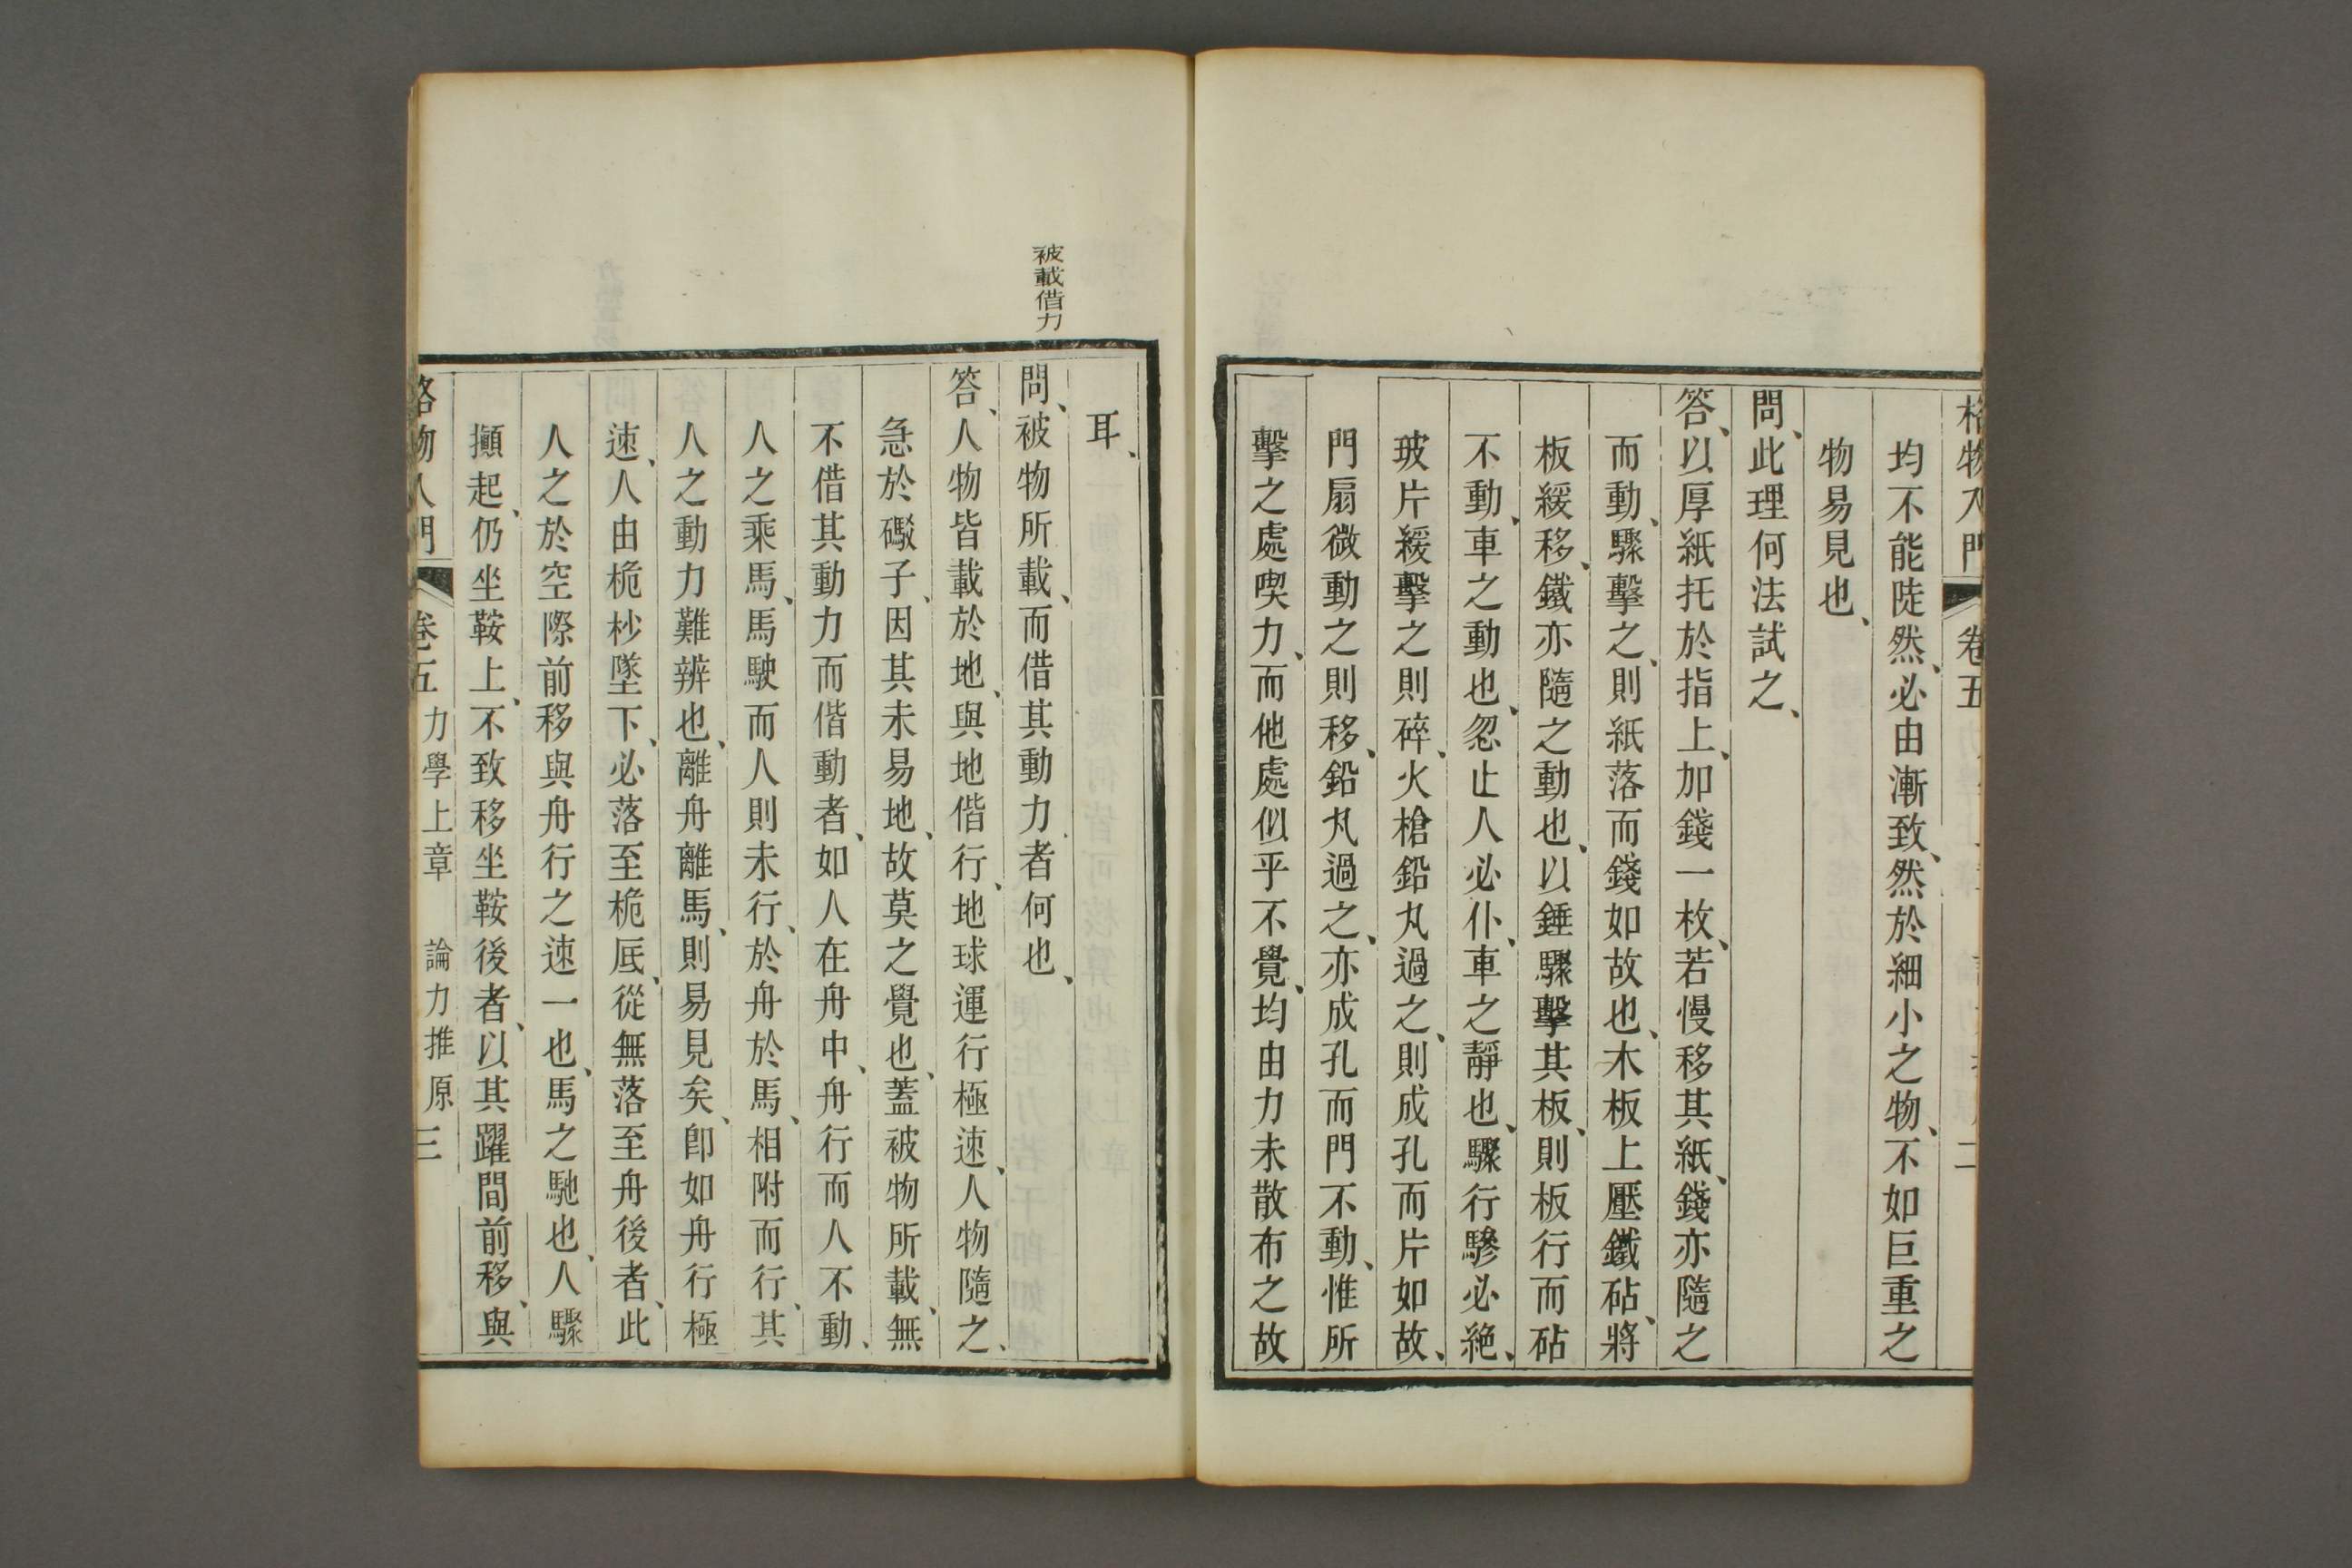 格物入門 卷五 二
均不能陡然、必由漸致、然於細小之物、不如巨重之
物易見也、
問、此理何法試之、
答、以厚紙托於指上、加錢一枚、若慢移其紙、錢亦隨之
而動、驟擊之、則紙落而錢如故也、木板上壓鐵砧、將
板緩移、鐵亦隨之動也、以錘驟擊其板、則板行而砧
不動、車之動也、忽止人必仆、車之靜也、驟行驂必絶、
玻片緩擊之則碎、火槍鉛丸過之、則成孔而片如故、
門扇微動之則移、鉛丸過之、亦成孔而門不動、惟所
擊之處喫力、而他處似乎不覺、均由力未散布之故
耳、
被載借力
問、被物所載、而借其動力者何也、
答、人物皆載於地、與地偕行、地球運行極速、人物隨之、
急於礮子、因其未易地、故莫之覺也、蓋被物所載、無
不借其動力而偕動者、如人在舟中、舟行而人不動、
人之乘馬、馬駛而人則未行、於舟於馬、相附而行、其
人之動力難辨也、離舟離馬、則易見矣、卽如舟行極
速、人由桅杪墜下、必落至桅底、從無落至舟後者、此
人之於空際前移與舟行之速一也、馬之馳也、人驟
攧起、仍坐鞍上、不致移坐鞍後者、以其躍間前移、與
格物入門 卷五 力學上章 論力推原 三